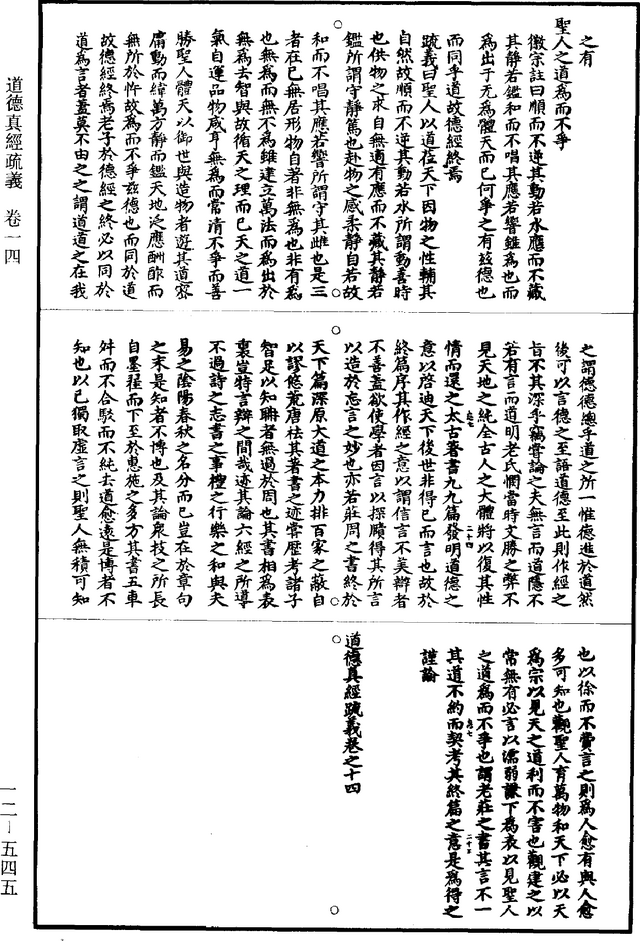 之有
聖人之道爲而不爭
徽宗註曰順而不逆其動若水應而不藏
其靜若鑑和而不唱其應若響雖爲也而
爲出于无爲體天而已何爭之有茲德也
而同乎道故德經終焉
疏義曰聖人以道莅天下因物之性輔其
自然故順而不逆其動若水所謂動善時
也供物之求自無適有應而不藏其靜若
鑑所謂守靜篤也赴物之感柔靜自若故
和而不唱其應若響所謂守其雌也是三
者在已無居形物自著非無爲也非有爲
也無爲而無不爲雖建立萬法而爲出於
無爲去智與故循天之理而已天之道一
氣自運品物咸亨無爲而常清不爭而善
勝聖人體天以御世與造物者遊其道密
庸動而緯萬方靜而鑑天地泛應酬酢而
無所於忤故爲而不爭茲德也而同於道
故德經終焉老子於德經之終必以同於
道爲言者蓋莫不由之之謂道道之在我
之謂德德總乎道之所一惟德進於道然
後可以言德之至語道德至此則作經之
旨不其深乎竊嘗論之夫無言而道隱不
若有言而道明老氏憫當時文勝之弊不
見天地之純全古人之大體將以復其性
情而還之太古著書九九篇發明道德之
意以啓迪天下後世非得已而言也故於
終篇序其作經之意以謂信言不美辯者
不善蓋欲使學者因言以探賾得其所言
以造於忘言之妙也亦若莊周之書終於
天下篇深原大道之本力排百家之蔽自
以謬悠荒唐枯其著書之迹嘗歷考諸子
智足以知聃者無過於周也其書相爲表
裏豈特言辯之間哉迹其論六經之所導
不過詩之志書之事禮之行樂之和與夫
易之陰陽春秋之名分而已豈在於章句
之末是知者不博也及其論衆技之所長
自墨程而下至於惠施之多方其書五車
舛而不合駁而不純去道愈遠是博者不
知也以已獨取虛言之則聖人無積可知
也以徐而不費言之則爲人愈有與人愈
多可知也觀聖人育萬物和天下必以天
爲宗以見天之道利而不害也觀建之以
常無有必言以濡弱謙下爲表以見聖人
之道爲而不爭也謂老莊之書其言不一
其道不約而契考其終篇之意是爲得之
謹論
道德真經疏義卷之十四
道德真經疏義 卷一四
一二－五四五